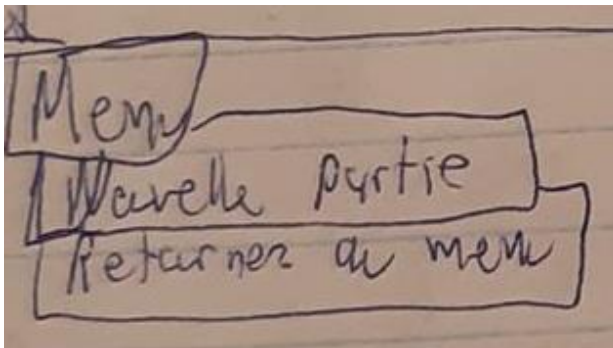 Menu
Nouvelle partie
Retourner au menu